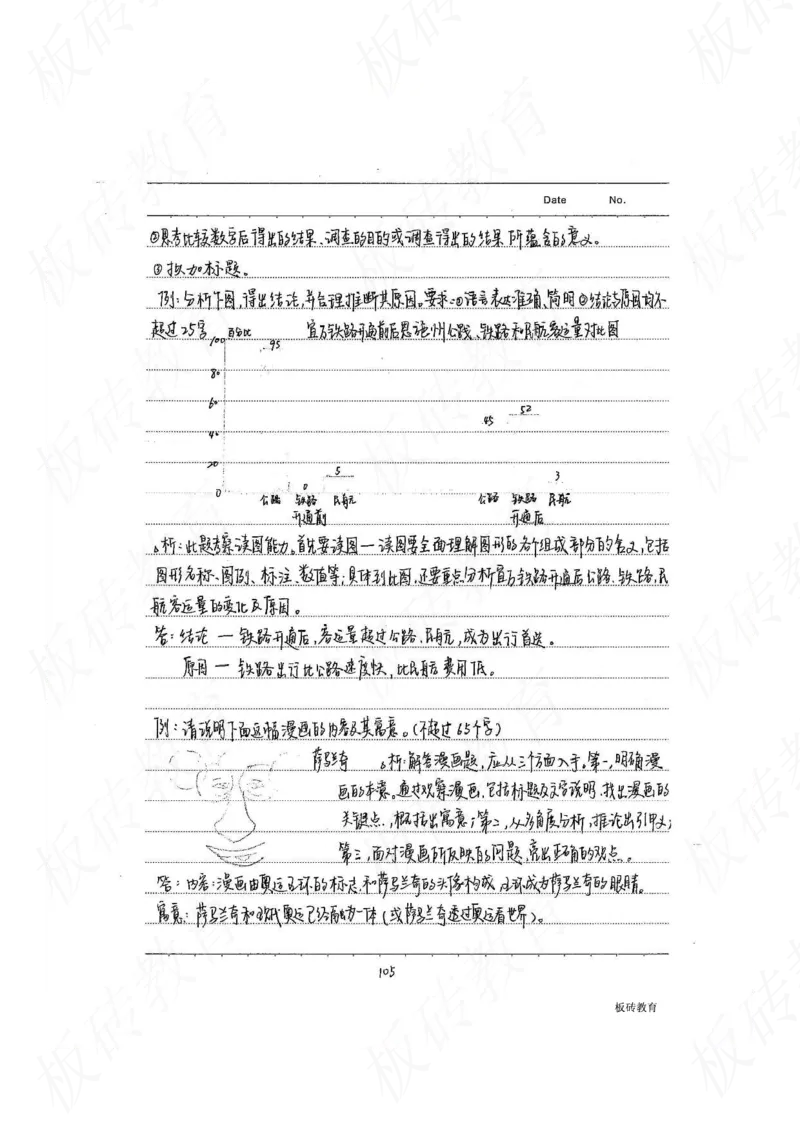 Date No.
②思考比较数字后得出的结果、调查的目的或调查得出的结果所蕴含的意义。
③拟加标题。
例:分析下图,得出结论,并合理推断其原因。要求:①语言表达准确、简明②结论与原因均不
超过25字
百分比 宜万铁路开通前后恩施州公路、铁路和民航客运量对比图
100 95
80
60 45 52
40
20 0 5 3
0 公路 铁路 民航 公路 铁路 民航
开通前 开通后
析:此题考察读图能力。首先要读图一读图要全面理解图形的各个组成部分的含义,包括
图形名称、图例、标注、数值等;具体到此图,还要重点分析宜万铁路开通后公路、铁路、民
航客运量的变化及原因。
答:结论 — 铁路开通后,客运量超过公路、民航,成为出行首选。
原因 — 铁路出行比公路速度快,比民航费用低。
例:请说明下面这幅漫画的内容及其寓意。(不超过65个字)
萨马兰奇 析:解答漫画题,应从三个方面入手。第一,明确漫
画的本意。通过观察漫画,包括标题及文字说明,找出漫画的
关键点,概括出寓意;第二,从多角度分析,推论出引申义;
第三,面对漫画所反映的问题,亮出正确的观点。
答:内容:漫画由奥运五环的标志和萨马兰奇的头像构成,五环成为萨马兰奇的眼睛。
寓意:萨马兰奇和现代奥运已经融为一体(或萨马兰奇透过奥运看世界)。
105
板砖教育